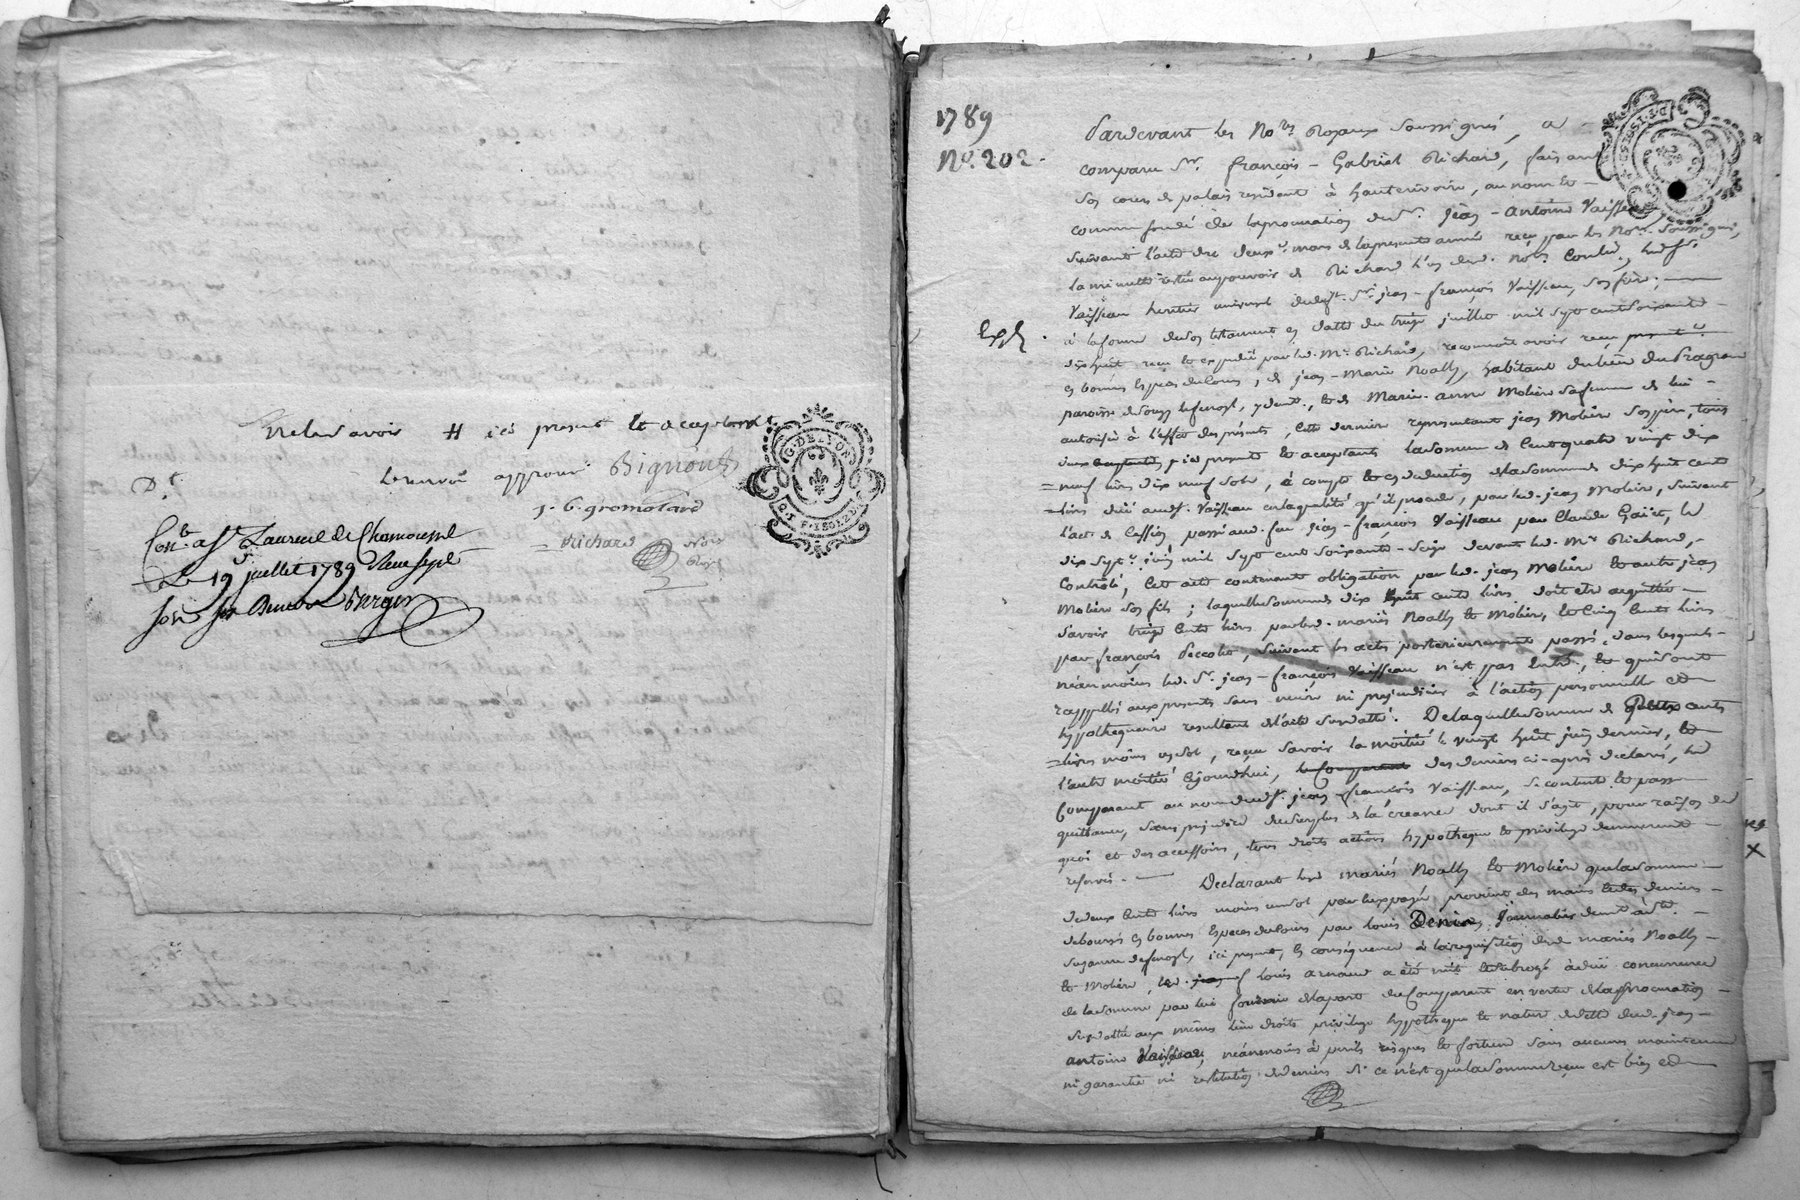 relu avoir # ici present et acceptant
le renvoi approuv. Bignon
J. G. gromolard
Richard Nore
Royal
G. DE LYON
Con.lé a St Laurent de Chamousset
Le 19 juillet 1789 Reçu sept
sols six deniers Berger
1789
No. 202.
Pardevant les No.res Royaux soussignés, a
comparu Sr. françois - Gabriel Richard, faisant
son cours de palais résident à hauterivoire, au nom et
comme fondé de la procuration du Sr. jean - Antoine Vaisseau
suivant l'acte du deux mars de la presente année reçu par les No.res soussignés,
la minutte restée au pouvoir de Richard l'un desd. No.res Controlé, led. Sr.
Vaisseau heritier universel dudft. Sr. jean - françois Vaisseau, son frère,
Exp.
à la forme de son testament en datte du treize juillet mil sept cent soixante
dix huit reçu et expedié par led. Me. Richard, reconnoit avoir reçu présentt.
en bonnes especes de cours, de jean - Marie Noally, habitant du lieu du
paroisse de Souzy et de Marie - anne Molière sa femme de lui
autorisée à l'effet des présentes, cette dernière representant jean Molière son père, tous
deux # ici present et acceptants la somme de Cent quatre vingt dix
neuf livres dix neuf sols, à compte et en deduction de la somme de dix huit cents
livres düe aud. Vaisseau en la qualité qu'il procede, par led. jean Molière, suivant
l'acte de Cession passé aud. feu jean - françois Vaisseau par Claude le
dix sept juin mil sept cent soixante - seize devant led. Me Richard,
Controlé, Cet acte contenant obligation par led. jean Molière et autre jean
Molière son fils; laquelle somme de dix huit cents livres doit etre acquittée
savoir treize Cents livres par led. mariés Noally et Molière, et Cinq Cents livres
par françois suivant les actes posterieurement passés dans lesquels
néanmoins led. Sr. jean - françois Vaisseau n'est pas entré, et qui sont
rappellés aux presentes sans nuire ni prejudicier à l'action personnelle et
hypothequaire resultant de l'acte susdatté. De laquelle somme de deux cents
livres moins un sol, reçue savoir la moitié le vingt huit juin dernier, et
l'autre moitié cejourdhui, le Comparant des deniers ci - après declarés, led
Comparant au nom dudft. jean - françois Vaisseau, se contente et passe
quittance, sans prejudice du surplus de la créance dont il s'agit, pour raison de
quoi et des accessoires, tous droits actions hypotheque et privilege demeurent
reservés. - Declarant led. mariés Noally et Molière que la somme
de deux Cents livres moins un sol par eux payée provient des mains et des deniers
deboursés en bonnes especes de cours par Louis Denis, journalier demt. à St.
ici present, en conséquence à la requisition desd. mariés Noally
et Molière, led. Louis arnaud a été mis et subrogé à düe concurrence
de la somme par lui fournie de la part du Comparant en vertu de la procuration
susdattée aux mêmes lieu droits privilege hypotheque et nature de dette dud. jean
antoine Vaisseau, néanmoins à perils risques et fortune sans aucune maintenue
ni garantie ni restitution de deniers si ce n'est que la somme reçue est bien et